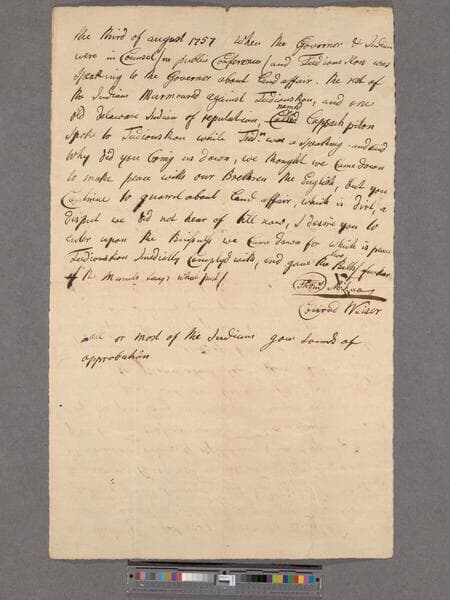 The third of august 1757 When the Governor & Indians
were in Counsel (in public Conference) and Tediouskon was
speaking to the Governor about Land affair. the rest of
the Indians Murmoured against Tediouskon, and one
old delaware Indian of reputation, Called named Cappach piton
spoke to Tediouskon while Tedn was a speaking and said
Why did you bring us down, we thought we came down
to make peace with our Brethren the English, but you
Continue to quarel about Land affair, which is dirt, a
disput we did not hear of till now, I desire you to
enter upon the Business we Came down for which is peace
Tediouskon Imediatly Complyd with, and gave the two Belts
of the
Thoms McKee
Conrad Weiser
all or most of the Indians gave sounds of
approbation